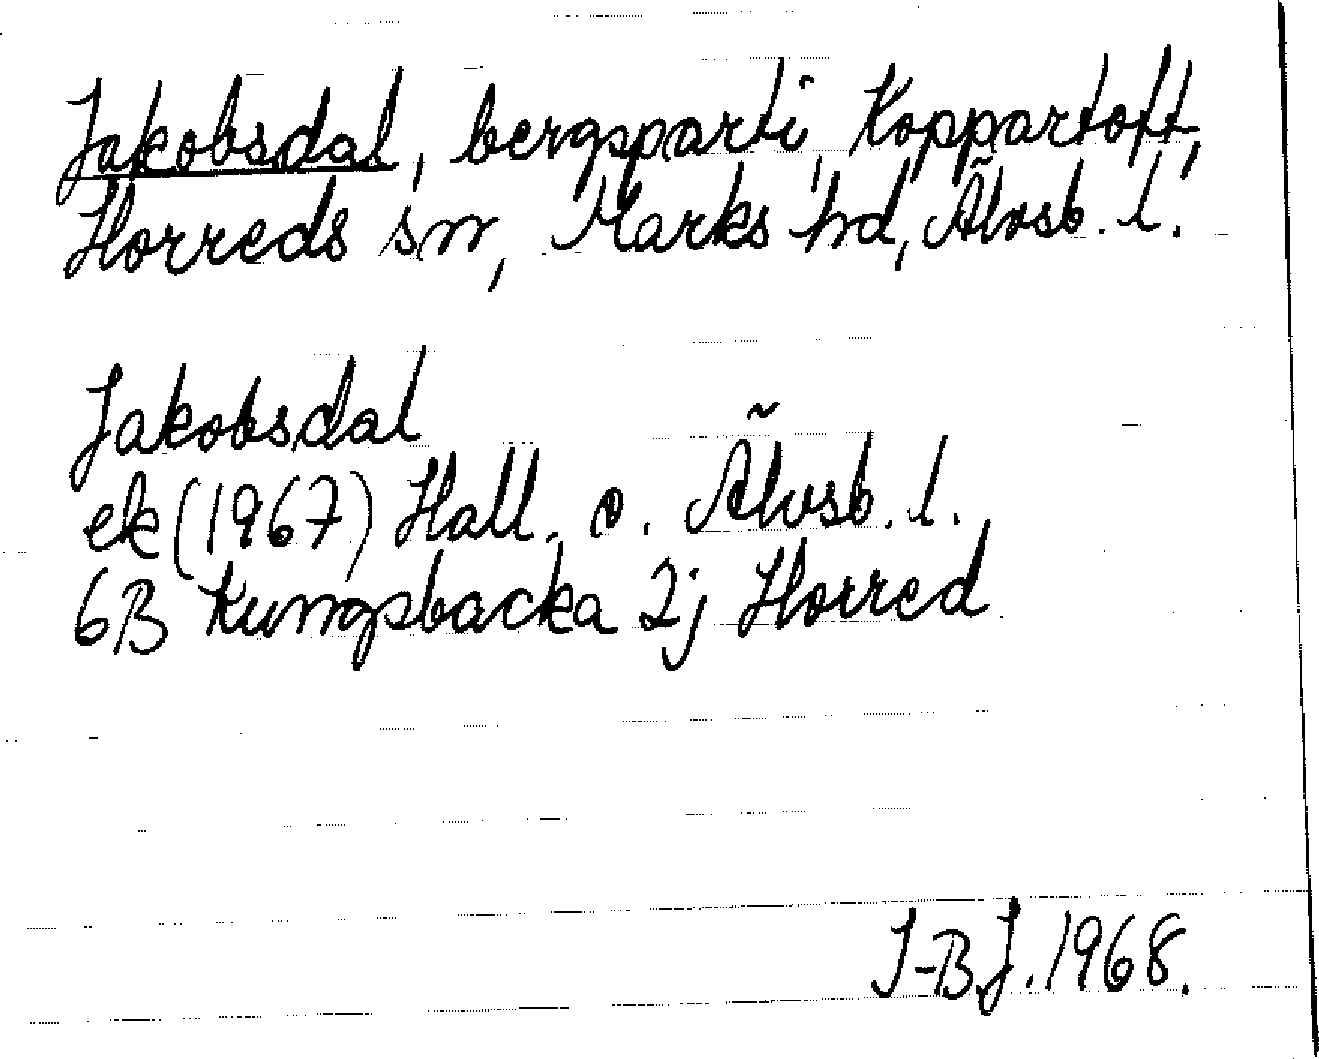 Jakobsdal, bergsparti, Koppartoft,
Horreds sn, Marks hd, Älvsb. l.
Jakobsdal
ek (1967) Hall. o. Älvsb. l.
6B Kungsbacka 2j Horred
I-B J. 1968.